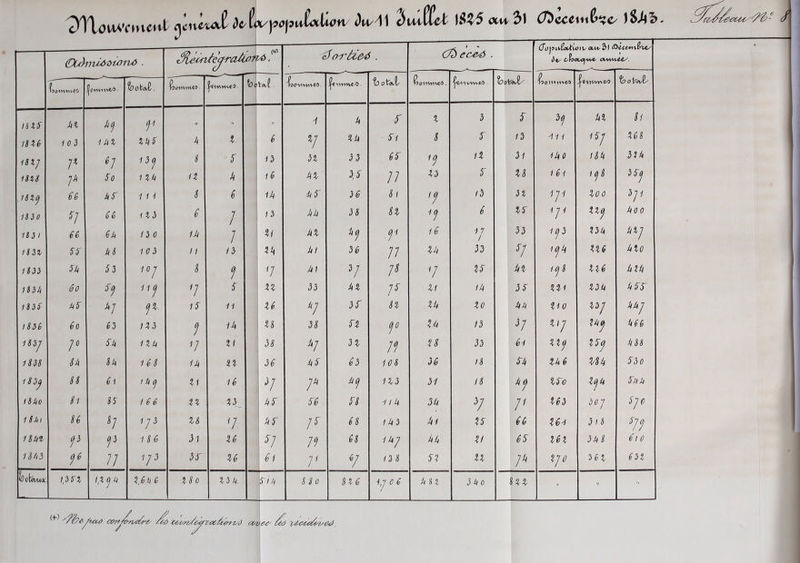 Mouvement général de la population du 11 Juillet 1825 au 31 Décembre 1843. Tableau Nº 8
Admissions. Réintégrations. (*) Sorties. Décès. Population au 31 Décembre
de chaque année.
hommes femmes. Total. hommes. femmes. Total hommes. femmes. Total hommes. femmes. Total hommes femmes. Total
1825 42 49 91 " " " 1 4 5 2 3 5 39 42 81
1826 103 142 245 4 2 6 27 24 51 8 5 13 111 157 268
1827 72 67 139 8 5 13 32 33 65 19 12 31 140 184 324
1828 74 50 124 12 4 16 42 35 77 23 5 28 161 198 359
1829 66 45 111 8 6 14 45 36 81 19 13 32 171 200 371
1830 57 66 123 6 7 13 44 38 82 19 6 25 171 229 400
1831 66 64 130 14 7 21 42 49 91 16 17 33 193 234 427
1832 55 48 103 11 13 24 41 36 77 24 33 57 194 226 420
1833 54 53 107 8 9 17 41 37 78 17 25 42 198 226 424
1834 60 59 119 17 5 22 33 42 75 21 14 35 221 234 455
1835 45 47 92 15 11 26 47 35 82 24 20 44 210 237 447
1836 60 63 123 9 14 28 38 52 90 24 13 37 217 249 466
1837 70 54 124 17 21 38 47 32 79 28 33 61 229 259 488
1838 84 84 168 14 22 36 45 63 108 36 18 54 246 284 530
1839 88 61 149 21 16 37 74 49 123 31 18 49 250 294 544
1840 81 85 166 22 23 45 56 58 114 34 37 71 263 307 570
1841 86 87 173 28 17 45 75 68 143 41 25 66 261 318 579
1842 93 93 186 31 26 57 79 68 147 44 21 65 262 348 610
1843 96 77 173 35 26 61 71 67 138 52 22 74 270 362 632
Totaux 1,352 1,294 2,646 280 234 514 880 826 1,706 482 340 822 " " "
(*) Ne pas confondre les réintégrations avec les récidives.